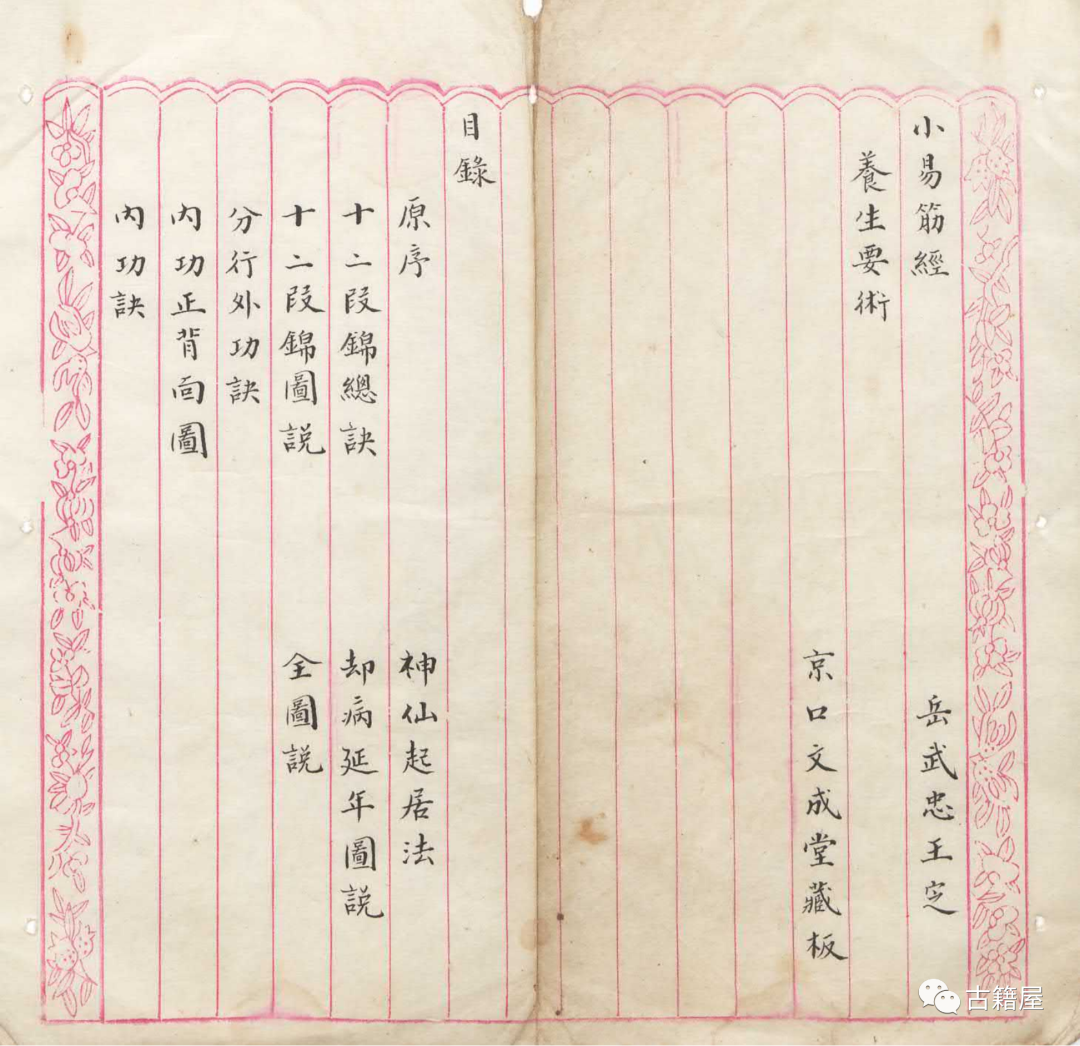 小易筋經
岳武忠王定
養生要術
京口文成堂藏板
目錄
原序
神仙起居法
十二段錦總訣
却病延年圖説
十二段錦圖説
全圖説
分行外功訣
内功正背面圖
内功訣
古籍屋